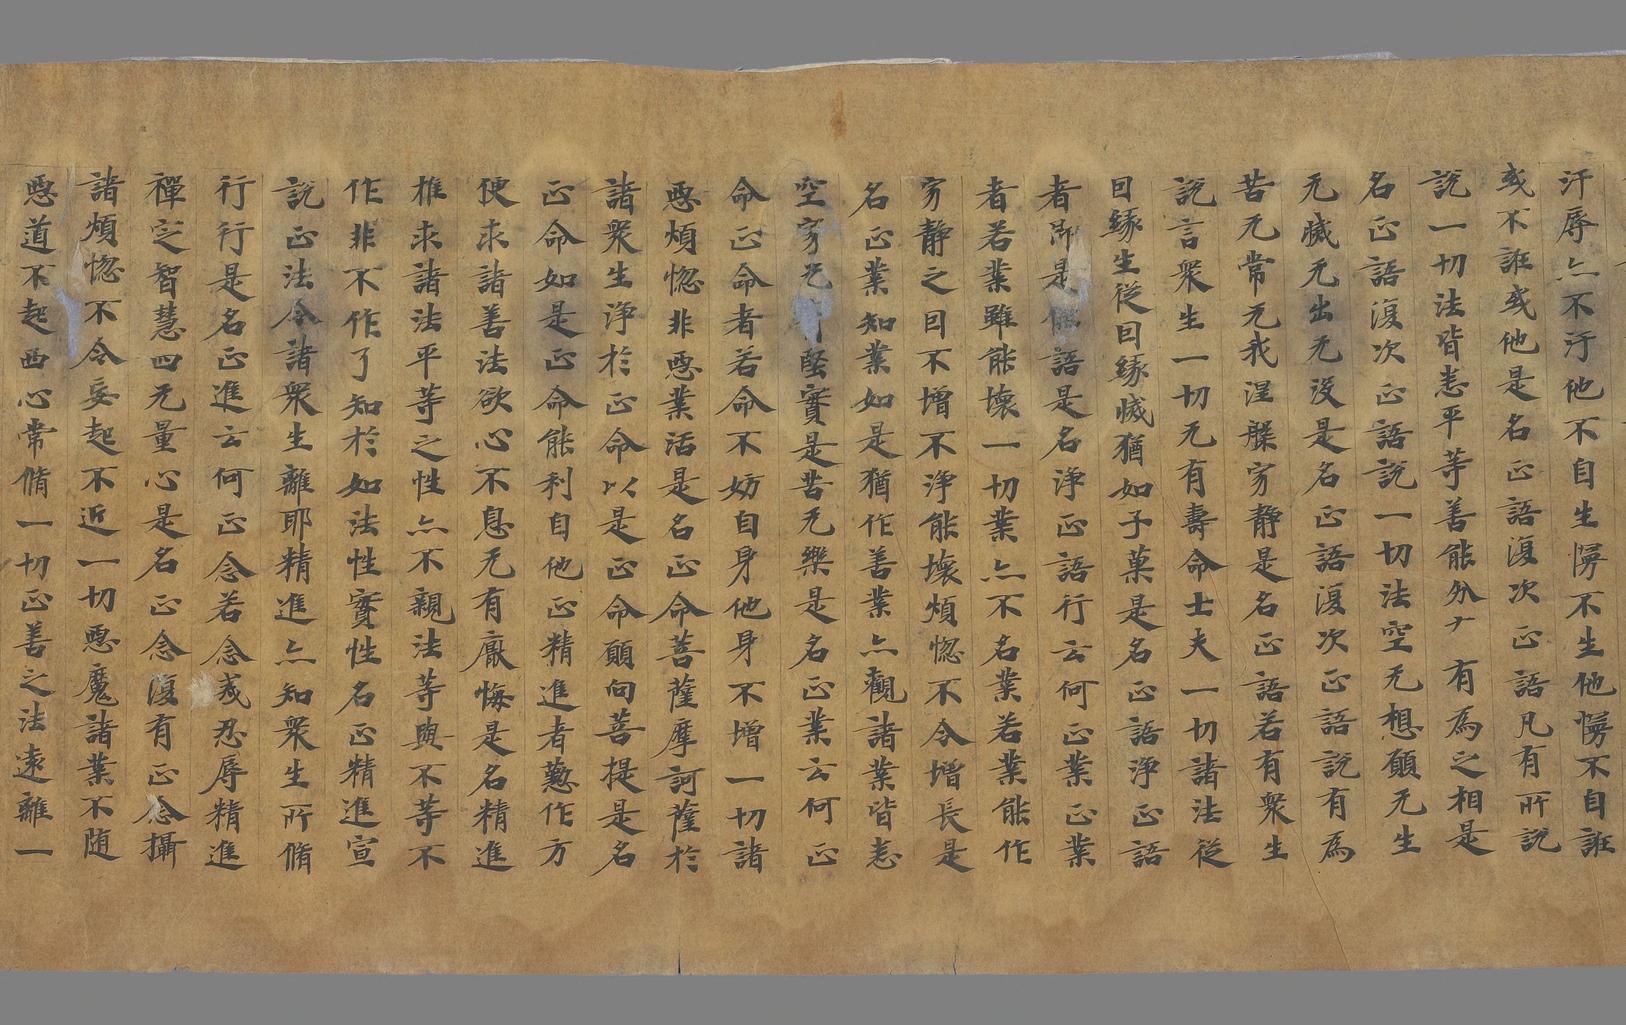 汙辱亦不汙他不自生憍不生他憍不自誑
或不誑或他是名正語復次正語凡有所說
說一切法皆悉平等善能分別有為之相是
名正語復次正語說一切法空无想願无生
无滅无出无沒是名正語復次正語說有為
苦无常无我涅槃寂靜是名正語若有衆生
說言衆生一切无有壽命士夫一切諸法從
因緣生從因緣滅猶如子菓是名正語淨正語
者即是 語是名淨正語行云何正業正業
者若業雖能壞一切業亦不名業若業能作
寂靜之因不增不淨能壞煩惱不令增長是
名正業知業如是猶作善業亦觀諸業皆悉
空寂无 堅實是苦无樂是名正業云何正
命正命者若命不妨自身他身不增一切諸
惡煩惱非惡業活是名正命菩薩摩訶薩於
諸衆生淨於正命以是正命願向菩提是名
正命如是正命能利自他正精進者懃作方
便求諸善法欲心不息无有厭悔是名精進
推求諸法平等之性亦不親法等與不等不
作非不作了知於如法性實性名正精進宣
說正法令諸衆生離耶精進亦知衆生所脩
行行是名正進云何正念若念戒忍辱精進
禪定智慧四无量心是名正念復有正念攝
諸煩惱不令妄起不近一切惡魔諸業不随
惡道不起西心常脩一切正善之法遠離一